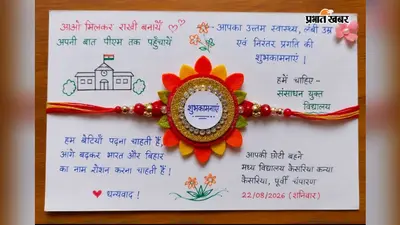 प्रभात खबर
आओ मिलकर राखी बनायें
अपनी बात पीएम तक पहुँचायें
आपका उत्तम स्वास्थ्य, लंबी उम्र
एवं निरंतर प्रगति की
शुभकामनाएं !
हमें चाहिए -
संसाधन युक्त
विद्यालय
शुभकामनाएं
हम बेटियाँ पढ़ना चाहती हैं,
आगे बढ़कर भारत और बिहार
का नाम रोशन करना चाहती हैं !
धन्यवाद !
आपकी छोटी बहनें
मध्य विद्यालय केसरिया कन्या
केसरिया, पूर्वी चंपारण
22/08/2026 (शनिवार)